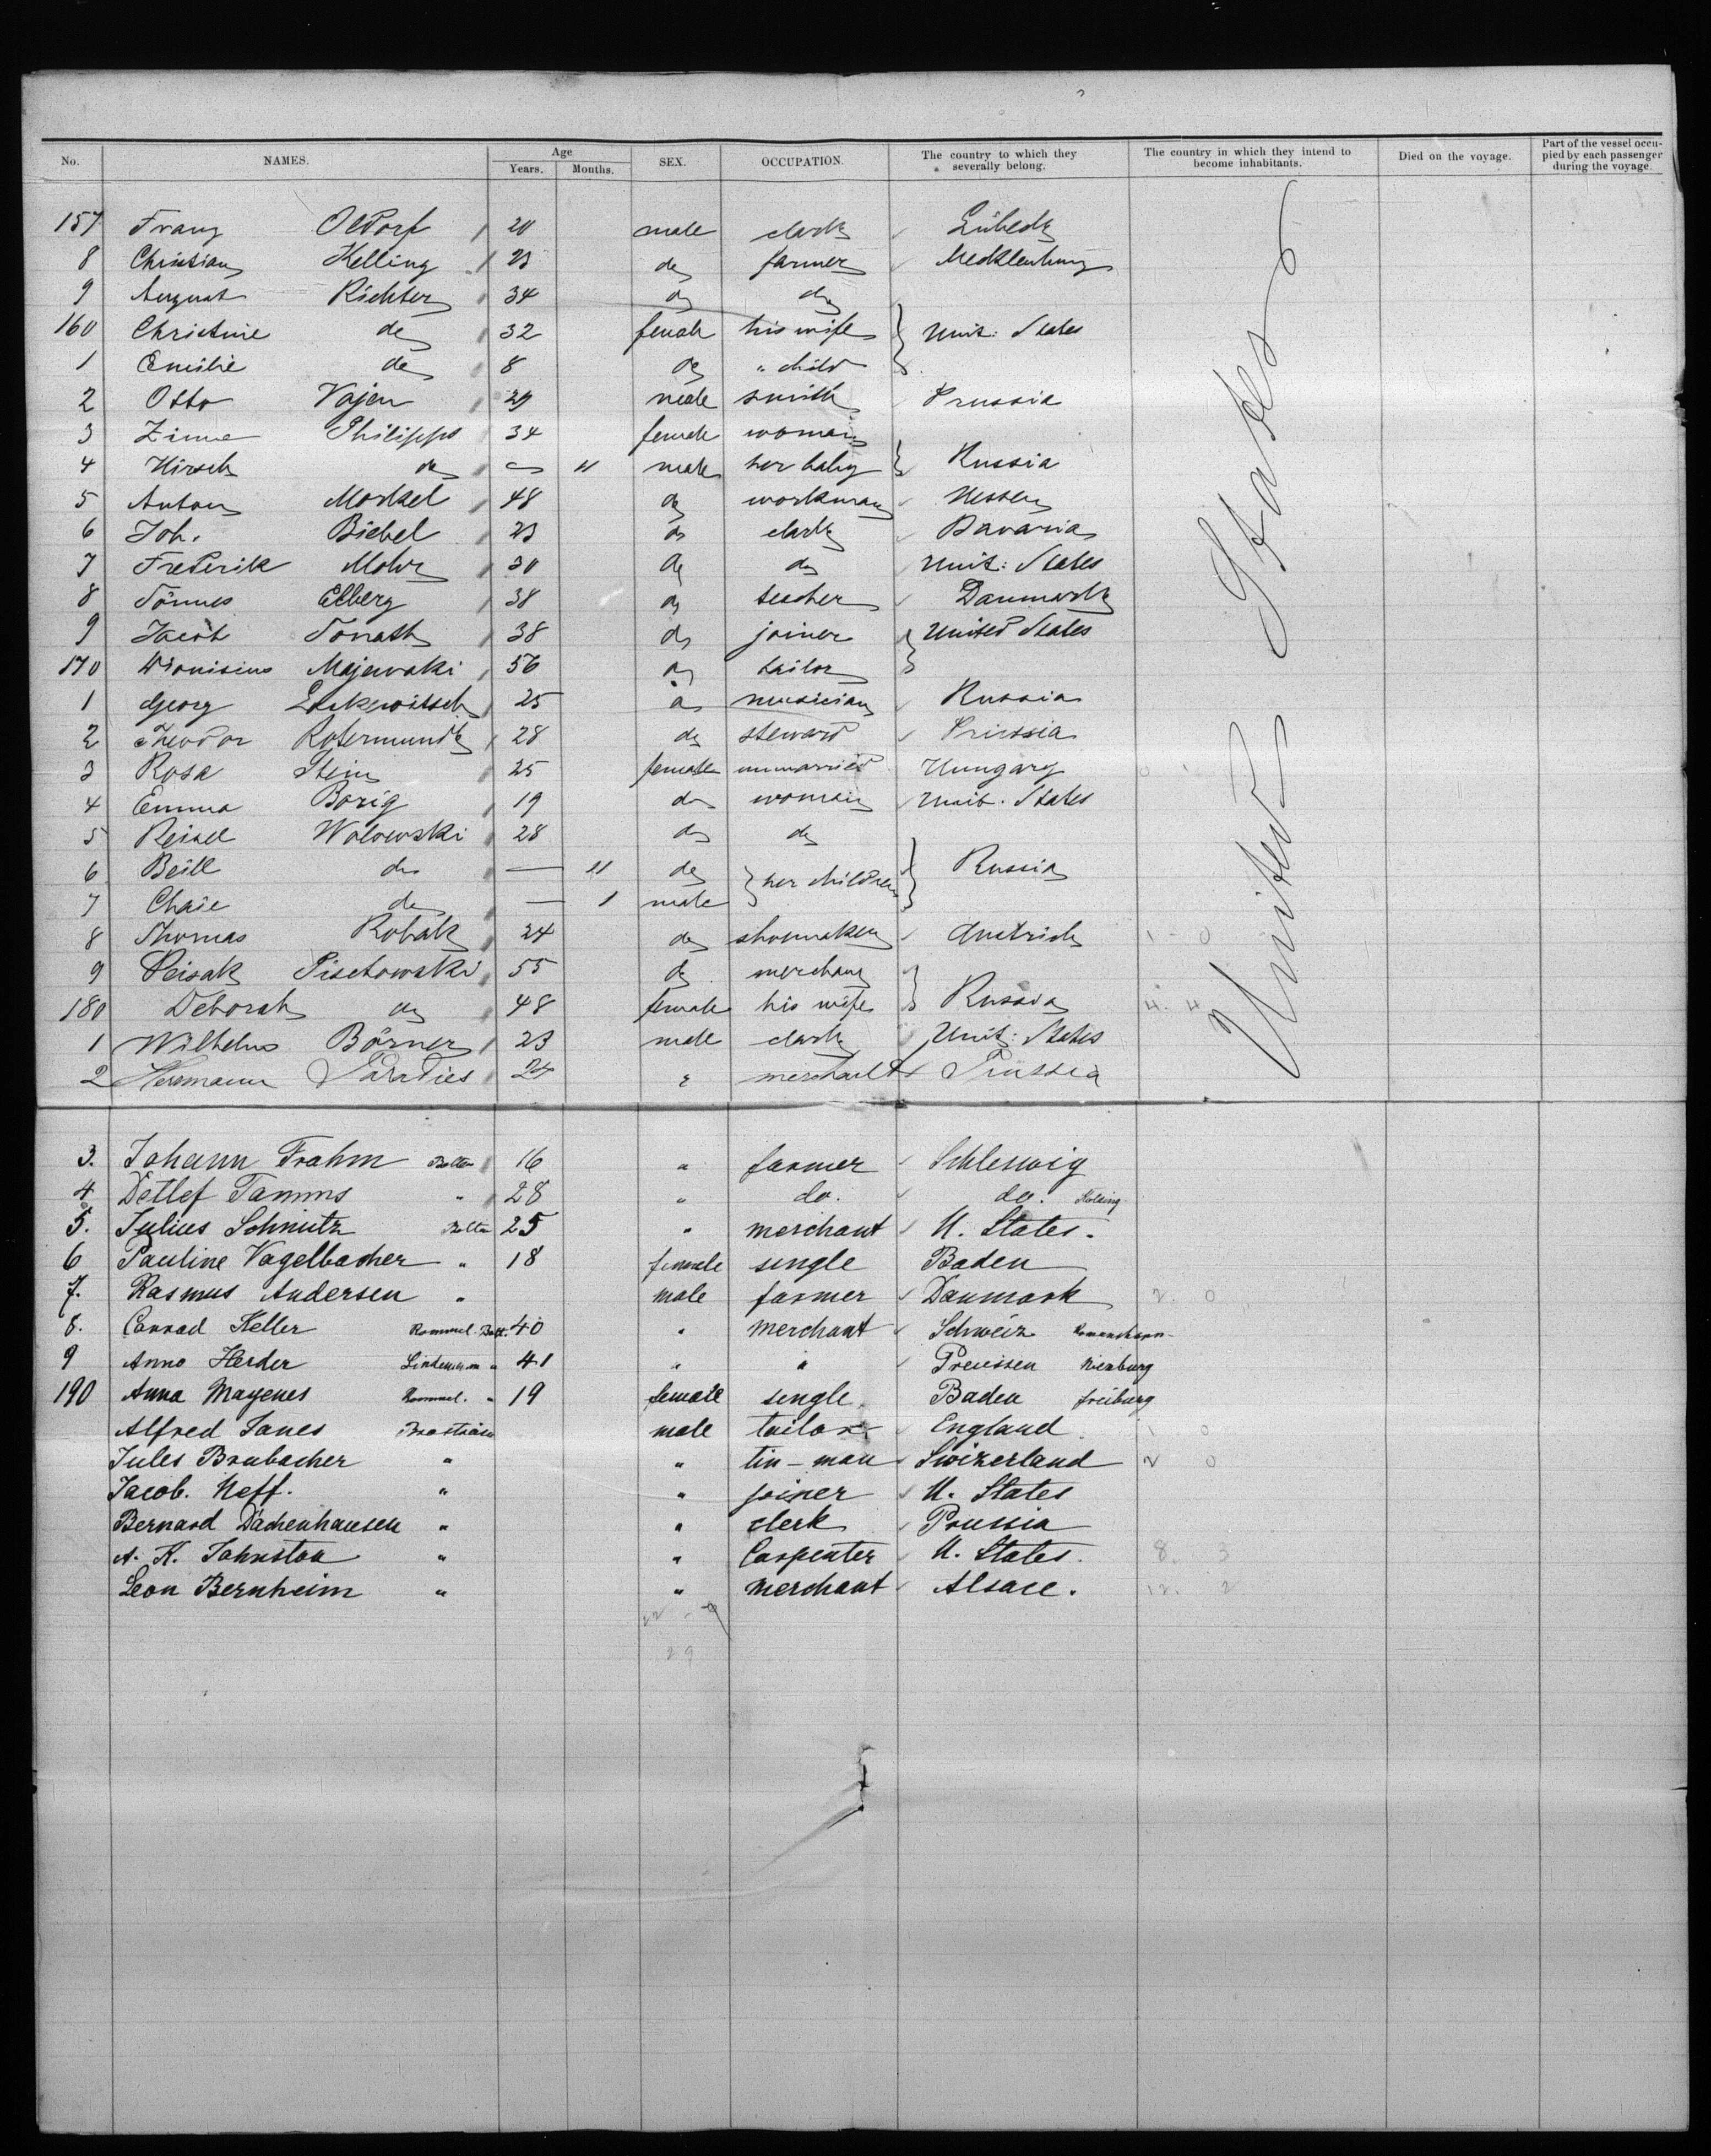 No. NAMES. Age Years. Months. SEX. OCCUPATION. The country to which they severally belong. The country in which they intend to become inhabitants. Died on the voyage. Part of the vessel occupied by each passenger during the voyage.
United States
157 Franz Oldorf 20 male clark Lübeck
8 Christian Kelling 23 do farmer Mecklenburg
9 August Richter 34 do do
160 Christine do 32 female his wife } Unit: States
1 Emilie do 8 do " child
2 Otto Vajen 29 male smith Prussia
3 Zinne Philipps 34 female woman
4 Hirsch do — 11 male her baby } Russia
5 Anton Morkel 48 do workman Hessen
6 Joh. Biebel 23 do clark Bavaria
7 Frederik Mohr 30 do do Unit: States
8 Tönnes Elberg 38 do teacher Danmark
9 Jacob Donath 38 do joiner } United States
170 Dionisius Majewski 56 do tailor
1 Georg 25 do musician Russia
2 Theodor Rotermundt 28 do steward Prussia
3 Rosa Stein 25 female unmarried Hungary
4 Emma Borig 19 do woman Unit. States
5 Reisel Wolowski 28 do do
6 Beile do — 11 do } her children } Russia
7 Chaie do — 1 male
8 Thomas Robak 24 do shoemaker Austrich
9 Peisak Pischowski 55 do merchant
180 Deborah do 48 female his wife } Russia
1 Wilhelm Börner 23 male clark Unit: States
2 Hermann Paradies 24 " merchant Prussia
3. Johann Frahm 16 " farmer Schleswig
4 Detlef Tamms " 28 " do. do. Kolding
5. Julius Schmutz 25 " merchant U. States.
6 Pauline Vagelbacher " 18 female single Baden
7. Rasmus Andersen " male farmer Danmark 2. 0
8. Conrad Keller Rommel 40 " merchant Schweiz Romanshorn
9 Anno Herder Lindemann " 41 " " Preussen Nienburg
190 Anna Magenes Rommel. " 19 female single. Baden freiburg
Alfred Janes male tailor England. 1 0
Jules Brubacher " " tin-man Swizerland 2 0
Jacob. Neff. " " joiner U. States
Bernard Dachenhausen " " clerk Prussia
A. K. Johnston " " Carpenter U. States. 8. 3
Leon Bernheim " " merchant Alsace. 12. 2
29